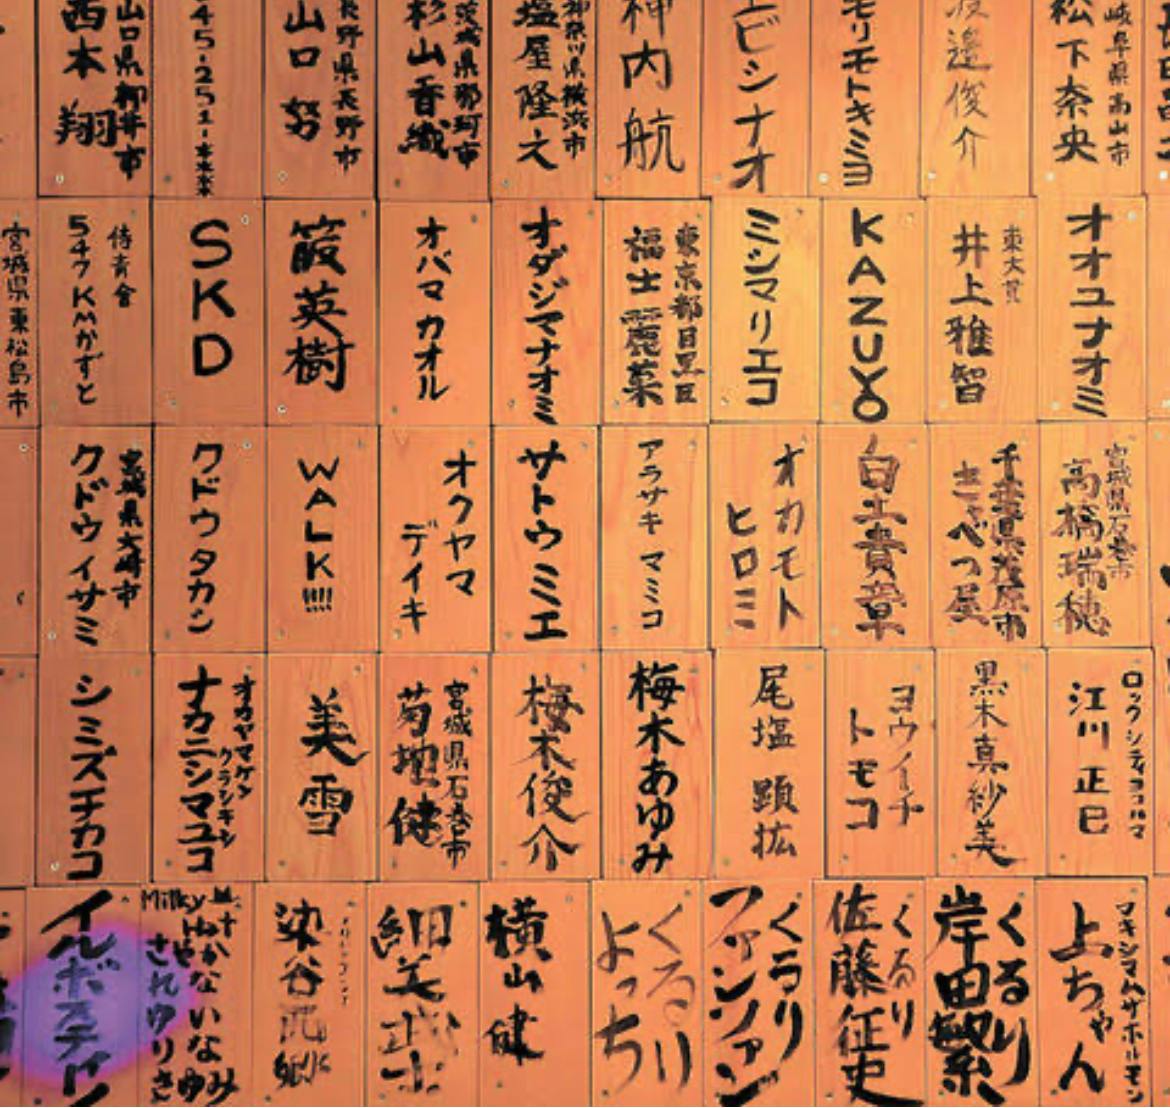 山口県柳井市
西本 翔
45-251-***
長野県長野市
山口 努
茨城県那珂市
杉山香織
神奈川県横浜市
塩屋隆之
神内航
エビシナオ
モリモトキミヨ
渡邉俊介
岐阜県高山市
松下奈央
宮城県東松島市
侍青會
547KMかずと
SKD
葭英樹
オバマ カオル
オダジマナオミ
東京都目黒区
福士麗菜
ミシマリエコ
KAZUYO
東大宮
井上雅智
オオユナオミ
宮城県大崎市
クドウイサミ
クドウタカシ
WALK!!!!
オクヤマ
デイキ
サトウミエ
アラサキ マミコ
オカモト
ヒロミ
白土貴章
千葉県茂原市
きゃべつ屋
宮城県石巻市
高橋瑞穂
シミズチカコ
オカヤマケン
クラシキシ
ナカニシマユコ
美雪
宮城県石巻市
菊地健
梅木俊介
梅木あゆみ
尾塩 顕拡
ヨウイチ
トモコ
黒木真紗美
ロックシティヨコハマ
江川正巳
イルボステイン
染谷西郷
細美武士
横山健
くるり
よっち
くるり
ファンファン
くるり
佐藤征史
くるり
岸田繁
マキシマムザホルモン
上ちゃん